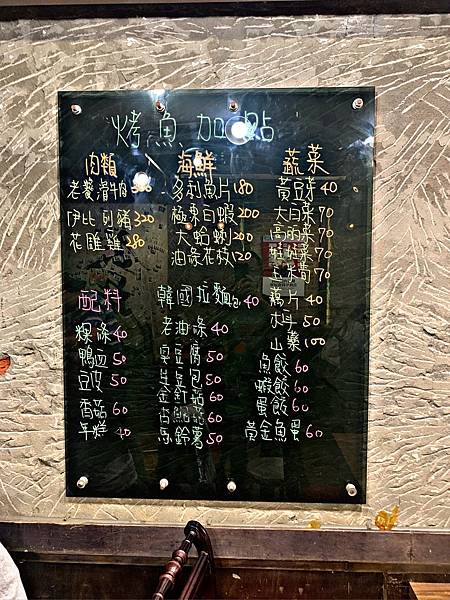 烤魚加點
肉類
老饕滑牛肉
伊比利豬 320
花雕雞 280
海鮮
多利魚片 180
極東白蝦 200
大蛤蜊 200
油條花枝 120
蔬菜
黃豆芽 40
大白菜 70
高麗菜 70
娃娃菜 70
玉米筍 70
藕片 40
木耳 50
山藥 100
魚餃 60
蝦餃 60
蛋餃 60
黃金魚蛋 60
配料
粿條 40
鴨血 50
豆皮 50
香菇 60
年糕 40
韓國拉麵 40
老油條 40
臭豆腐 50
生豆包 50
金針菇 60
古鮑菇 60
馬鈴薯 50